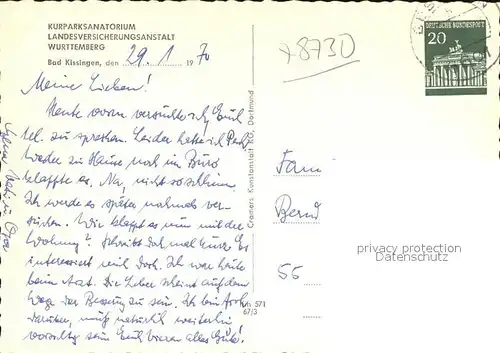 KURPARKSANATORIUM
LANDESVERSICHERUNGSANSTALT
WÜRTTEMBERG
Bad Kissingen, den 29.1 1970
x8730
DEUTSCHE BUNDESPOST
20
Meine Lieben!
Heute vorm versuchte ich Euch
tel. zu sprechen. Leider hatte ich Pech
weder zu Hause noch im Büro
klappte es. Na, nicht so schlimm.
Ich werde es später nochmals ver-
suchen. Wie klappt es nun mit der
Wohnung? Schreibt doch mal kurz. Es
interessiert mich doch. Ich war heute
beim Arzt. Die Leber scheint auf dem
Wege der Besserung zu sein. Ich bin froh
darüber, muß natürlich weiterhin
vorsichtig sein. Euch vieren alles Gute!
Cramers Kunstanstalt KG, Dortmund
Fam
Bernd
56
571
67/3
privacy protection
Datenschutz